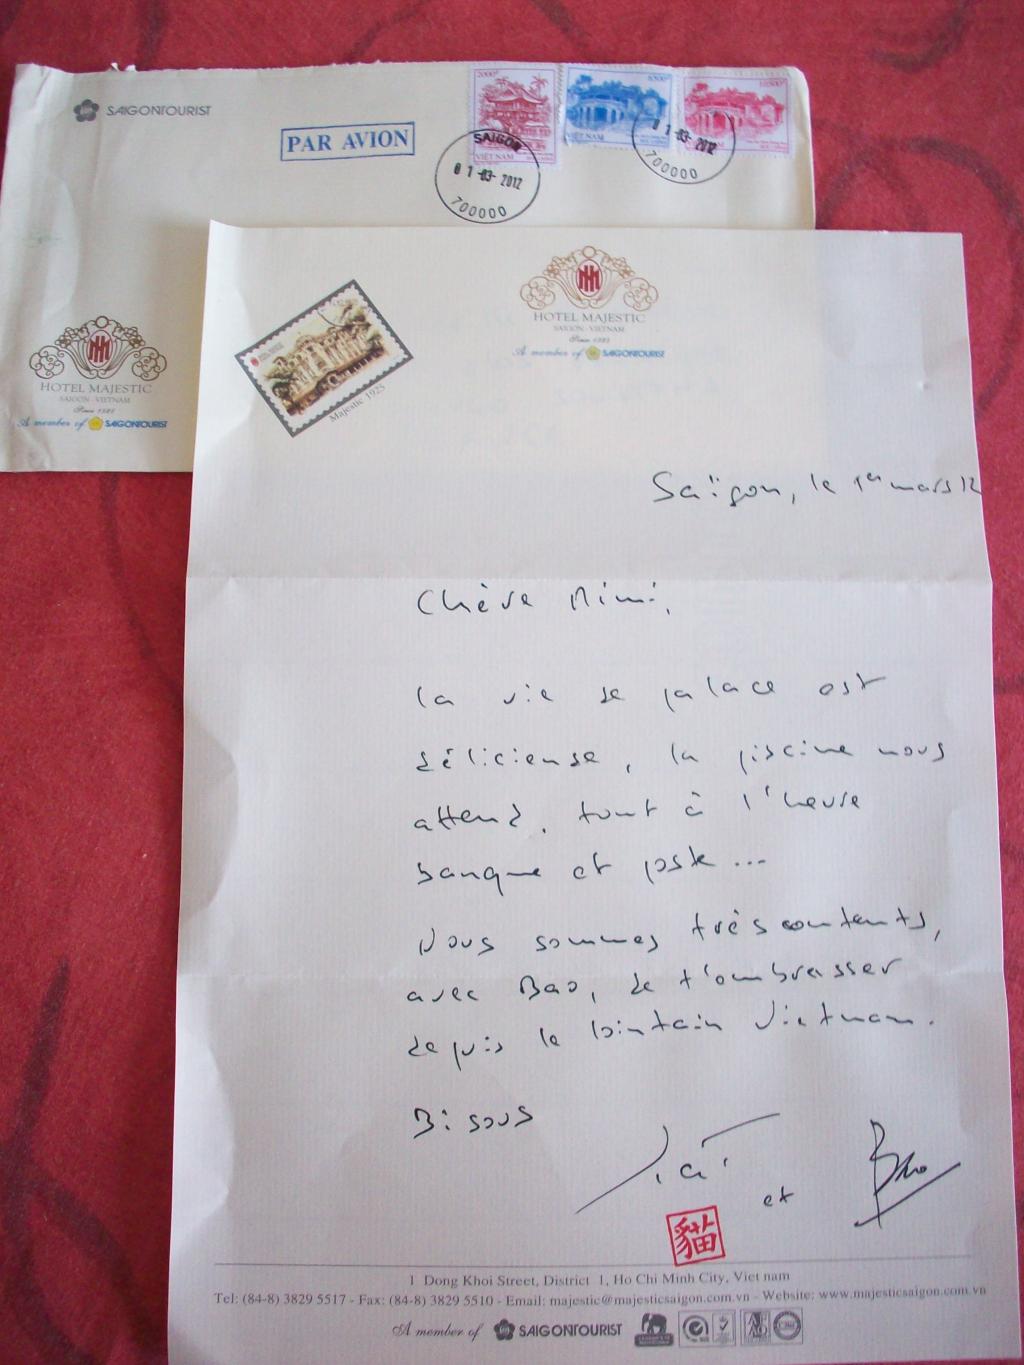 SAIGONTOURIST
PAR AVION
2000đ
VIỆT NAM
SAIGON
01-03-2012
700000
VIỆT NAM
01-03-2012
700000
HOTEL MAJESTIC
SAIGON - VIETNAM
Since 1925
A member of SAIGONTOURIST
Majestic 1925
HOTEL MAJESTIC
SAIGON - VIETNAM
Since 1925
A member of SAIGONTOURIST
Saïgon, le 1er mars 12
Chère Mimi,
la vie de palace est
délicieuse, la piscine nous
attend, tout à l'heure
banque et poste...
Nous sommes très contents,
avec Bao, de t'embrasser
depuis le lointain Vietnam.
Bisous
et Bao
貓
1 Dong Khoi Street, District 1, Ho Chi Minh City, Viet nam
Tel: (84-8) 3829 5517 - Fax: (84-8) 3829 5510 - Email: majestic@majesticsaigon.com.vn - Website: www.majesticsaigon.com.vn
A member of SAIGONTOURIST